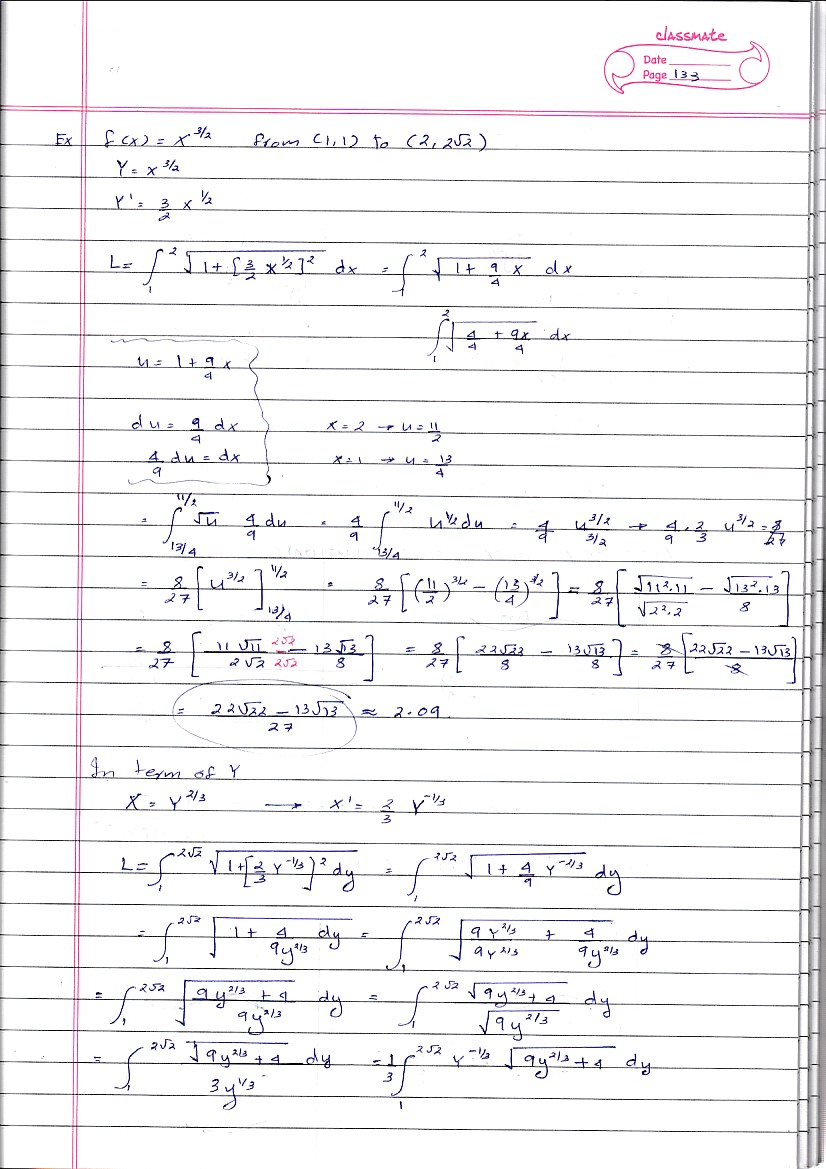 classmate
Date
Page 133
Ex f(x) = x^3/2 from (1,1) to (2, 2√2)
Y = x^3/2
Y' = 3/2 x^1/2
L = ∫_1^2 √(1 + [3/2 x^1/2]^2) dx = ∫_1^2 √(1 + 9/4 x) dx
∫_1^2 √(4/4 + 9x/4) dx
u = 1 + 9/4 x
du = 9/4 dx x = 2 → u = 11/2
4/9 du = dx x = 1 → u = 13/4
= ∫_13/4^11/2 √u 4/9 du = 4/9 ∫_13/4^11/2 u^1/2 du = 4/9 u^3/2 / 3/2 → 4/9 · 2/3 u^3/2 = 8/27
= 8/27 [u^3/2]_13/4^11/2 = 8/27 [(11/2)^3/2 − (13/4)^3/2] = 8/27 [√(11²·11) / √(2²·2) − √(13²·13) / 8]
= 8/27 [11√11 / 2√2 2√2 / 2√2 − 13√13 / 8] = 8/27 [22√22 / 8 − 13√13 / 8] = 8/27 [(22√22 − 13√13) / 8]
= (22√22 − 13√13) / 27 ≈ 2.09
In term of Y
X = Y^2/3 → X' = 2/3 Y^-1/3
L = ∫_1^2√2 √(1 + [2/3 Y^-1/3)^2 dy) = ∫_1^2√2 √(1 + 4/9 Y^-2/3) dy
= ∫_1^2√2 √(1 + 4/9y^2/3 dy) = ∫_1^2√2 √(9Y^2/3 / 9Y^2/3 + 4 / 9y^2/3) dy
= ∫_1^2√2 √((9y^2/3 + 4) / 9y^2/3) dy = ∫_1^2√2 √(9y^2/3 + 4) / √(9y^2/3) dy
= ∫_1^2√2 √(9y^2/3 + 4) / 3y^1/3 dy = 1/3 ∫_1^2√2 Y^-1/3 √(9y^2/3 + 4) dy